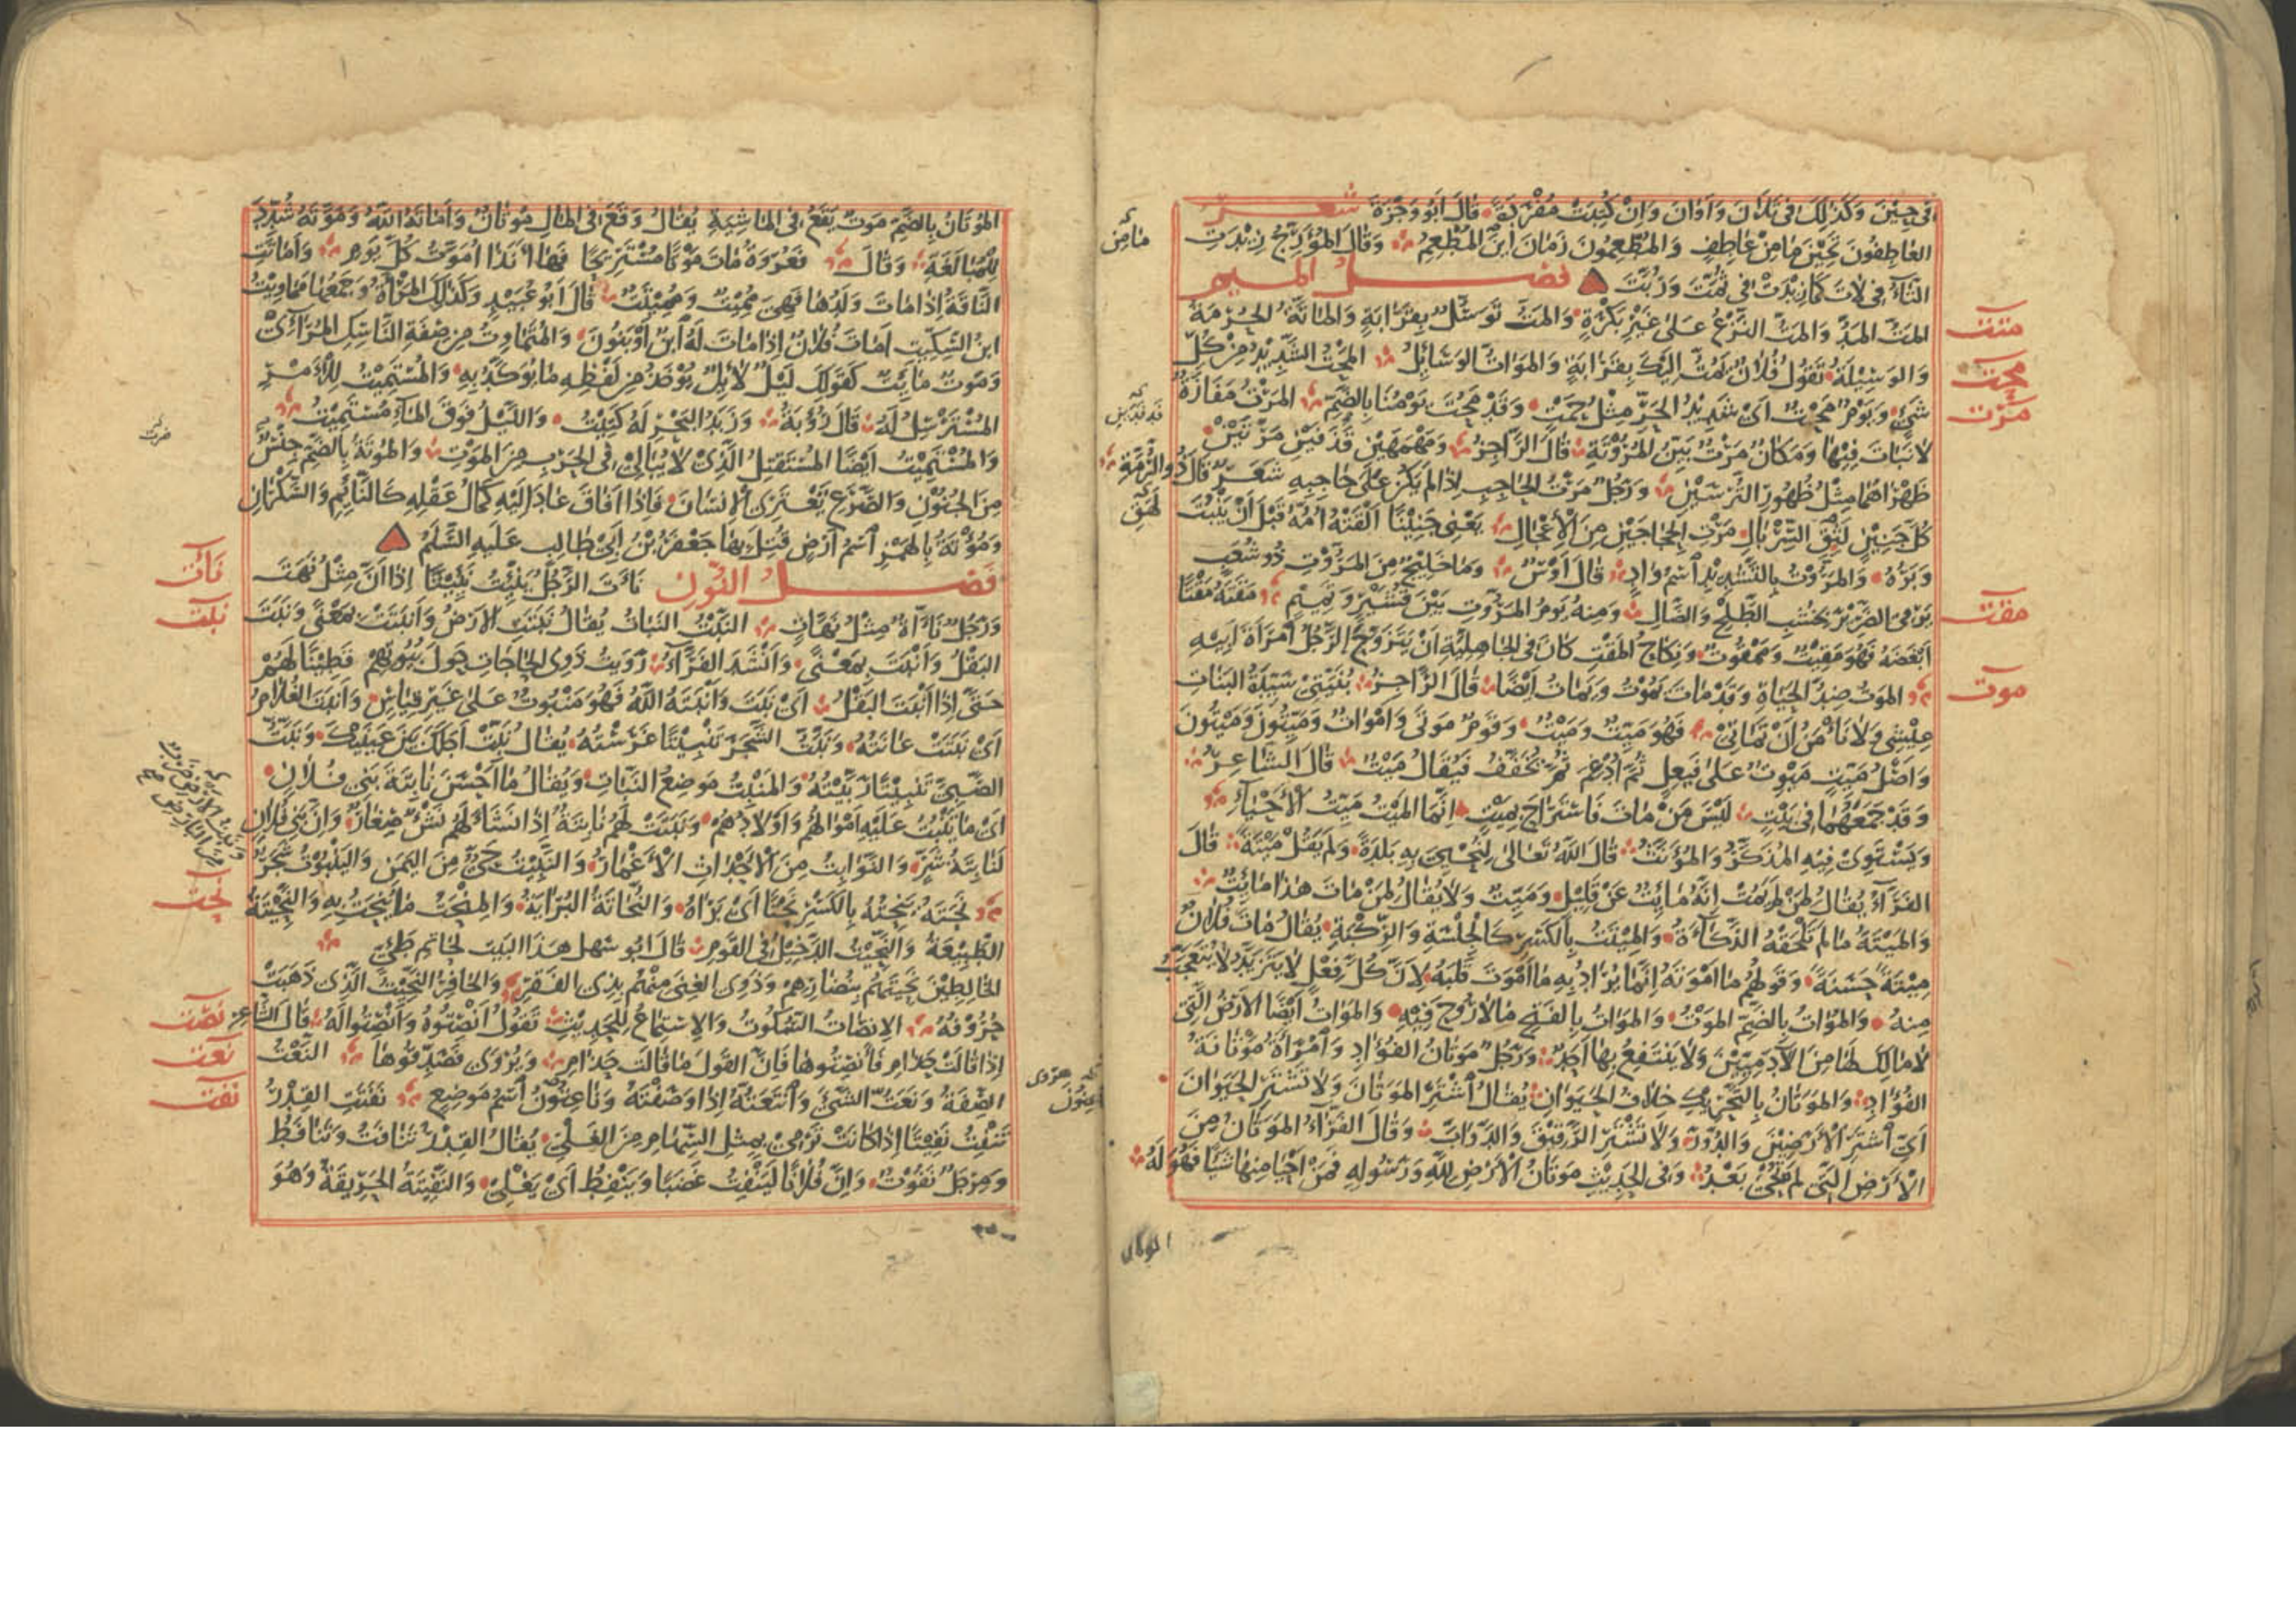 فى حِيْنَ وَكَذٰلِكَ فى تَلَانَ وَاَوَانَ وَاِنْ كُتِبَتْ مُفْرَدَةً قَالَ اَبُو وَجْزَةَ شعر
العَاطِفُونَ تَحِيْنَ مَا مِنْ عَاطِفٍ وَالمُطْعِمُونَ زَمَانَ اَيْنَ المُطْعِمُ وَقَالَ المُؤَرِّجُ زِيْدَتِ
التَّاءُ فى لَاتَ كَمَا زِيْدَتْ فى ثُمَّتَ وَرُبَّتَ فصل الميم
المَتُّ المَدُّ وَالمَتُّ النَّزْعُ عَلىٰ غَيْرِ بَكَرَةٍ وَالمَتُّ تَوَسُّلٌ بِقَرَابَةٍ وَالمَاتَّةُ الحُرْمَةُ
وَالوَسِيْلَةُ تَقُولُ فُلَانٌ يَمُتُّ اِلَيْكَ بِقَرَابَةٍ وَالمَوَاتُّ الوَسَائِلُ المَحْتُ الشَّدِيْدُ مِنْ كُلِّ
شَىْءٍ وَيَوْمٌ مَحْتٌ اَىْ شَدِيْدُ الحَرِّ مِثْلُ حَمْتٍ وَقَدْ مَحُتَ يَوْمُنَا بِالضَّمِّ المَرْتُ مَفَازَةٌ
لَا نَبَاتَ فِيْهَا وَمَكَانٌ مَرْتٌ بَيِّنُ المُرُوْتَةِ قَالَ الرَّاجِزُ وَمَهْمَهَيْنِ قَذَفَيْنِ مَرْتَيْنْ
ظَهْرَاهُمَا مِثْلُ ظُهُورِ التُّرْسَيْنْ وَرَجُلٌ مَرْتُ الحَاجِبِ اِذَا لَمْ يَكُنْ عَلىٰ حَاجِبِهِ شَعَرٌ قَالَ ذُو الرُّمَّةِ
كُلَّ جَنِيْنٍ لَثِقِ السِّرْبَالِ مَرْتِ الحِجَاجَيْنِ مِنَ الْاِعْجَالِ يَعْنِى جَنِيْنًا اَلْقَتْهُ اُمُّهُ قَبْلَ اَنْ يَنْبُتَ
وَبَرُهُ وَالمَرُّوْتُ بِالتَّشْدِيْدِ اسْمُ وَادٍ قَالَ اَوْسٌ وَمَا خَلِيْجٌ مِنَ المَرُّوْتِ ذُو شُعَبٍ
يَرْمِى الضَّرِيْرَ بِخُشْبِ الطَّلْحِ وَالضَّالِ وَمِنْهُ يَوْمُ المَرُّوْتِ بَيْنَ قُشَيْرٍ وَتَمِيْمٍ مَقَتَهُ مَقْتًا
اَبْغَضَهُ فَهُوَ مَقِيْتٌ وَمَمْقُوْتٌ وَنِكَاحُ المَقْتِ كَانَ فى الجَاهِلِيَّةِ اَنْ يَتَزَوَّجَ الرَّجُلُ امْرَاَةَ اَبِيْهِ
المَوْتُ ضِدُّ الحَيَاةِ وَقَدْ مَاتَ يَمُوْتُ وَيَمَاتُ اَيْضًا قَالَ الرَّاجِزُ بُنَيَّتِىْ سَيِّدَةَ البَنَاتِ
عِيْشِى وَلَا نَأْمَنُ اَنْ تَمَاتِىْ فَهُوَ مَيِّتٌ وَمَيْتٌ وَقَوْمٌ مَوْتَى وَاَمْوَاتٌ وَمَيِّتُونَ وَمَيْتُونَ
وَاَصْلُ مَيِّتٍ مَيْوِتٌ عَلىٰ فَيْعِلٍ ثُمَّ اُدْغِمَ ثُمَّ يُخَفَّفُ فَيُقَالُ مَيْتٌ قَالَ الشَّاعِرُ
وَقَدْ جَمَعَهُمَا فى بَيْتٍ لَيْسَ مَنْ مَاتَ فَاسْتَرَاحَ بِمَيْتٍ اِنَّمَا المَيْتُ مَيِّتُ الْاَحْيَاءِ
وَيَسْتَوِىْ فِيْهِ المُذَكَّرُ وَالمُؤَنَّثُ قَالَ اللّٰهُ تَعَالىٰ لِنُحْيِىَ بِهِ بَلْدَةً وَلَمْ يَقُلْ مَيْتَةً قَالَ
الفَرَّاءُ يُقَالُ لِمَنْ لَمْ يَمُتْ اِنَّهُ مَائِتٌ عَنْ قَلِيْلٍ وَمَيِّتٌ وَلَا يُقَالُ لِمَنْ مَاتَ هٰذَا مَائِتٌ
وَالمَيْتَةُ مَا لَمْ تَلْحَقْهُ الذَّكَاةُ وَالمِيْتَةُ بِالكَسْرِ كَالْجِلْسَةِ وَالرِّكْبَةِ يُقَالُ مَاتَ فُلَانٌ
مِيْتَةً حَسَنَةً وَقَوْلُهُمْ مَا اَمْوَتَهُ اِنَّمَا يُرَادُ بِهِ مَا اَمْوَتَ قَلْبَهُ لِاَنَّ كُلَّ فِعْلٍ لَا يَتَزَيَّدُ لَا يُتَعَجَّبُ
مِنْهُ وَالمُوَاتُ بِالضَّمِّ المَوْتُ وَالمَوَاتُ بِالفَتْحِ مَا لَا رُوْحَ فِيْهِ وَالمَوَاتُ اَيْضًا الْاَرْضُ الَّتِى
لَا مَالِكَ لَهَا مِنَ الْآدَمِيِّيْنَ وَلَا يَنْتَفِعُ بِهَا اَحَدٌ وَرَجُلٌ مَوْتَانُ الفُؤَادِ وَامْرَاَةٌ مَوْتَانَةُ
الفُؤَادِ وَالمَوَتَانُ بِالتَّحْرِيْكِ خِلَافُ الحَيَوَانِ يُقَالُ اشْتَرِ المَوَتَانَ وَلَا تَشْتَرِ الحَيَوَانَ
اَىْ اشْتَرِ الْاَرَضِيْنَ وَالدُّوْرَ وَلَا تَشْتَرِ الرَّقِيْقَ وَالدَّوَابَّ وَقَالَ الفَرَّاءُ المَوَتَانُ مِنَ
الْاَرْضِ الَّتِى لَمْ تُحْىَ بَعْدُ وَفى الحَدِيْثِ مَوَتَانُ الْاَرْضِ لِلّٰهِ وَرَسُولِهِ فَمَنْ اَحْيَا مِنْهَا شَيْئًا فَهُوَ لَهُ
متت
محت
مرت
مقت
موت
المُوْتَانُ بِالضَّمِّ مَوْتٌ يَقَعُ فى المَاشِيَةِ يُقَالُ وَقَعَ فى المَالِ مُوْتَانٌ وَاَمَاتَهُ اللّٰهُ وَمَوَّتَهُ شُدِّدَ
لِلْمُبَالَغَةِ وَقَالَ فَعُرْوَةُ مَاتَ مَوْتًا مُسْتَرِيْحًا فَهَا اَنَا ذَا اُمَوَّتُ كُلَّ يَوْمٍ وَاَمَاتَتِ
النَّاقَةُ اِذَا مَاتَ وَلَدُهَا فَهِىَ مُمِيْتٌ وَمُمِيْتَةٌ قَالَ اَبُو عُبَيْدٍ وَكَذٰلِكَ المَرْاَةُ وَجَمْعُهَا مَمَاوِيْتُ
ابْنُ السِّكِّيْتِ اَمَاتَ فُلَانٌ اِذَا مَاتَ لَهُ ابْنٌ اَوْ بَنُونَ وَالمُتَمَاوِتُ مِنْ صِفَةِ النَّاسِكِ المُرَائِىْ
وَمَوْتٌ مَائِتٌ كَقَوْلِكَ لَيْلٌ لَائِلٌ يُؤْخَذُ مِنْ لَفْظِهِ مَا يُوَكَّدُ بِهِ وَالمُسْتَمِيْتُ لِلْاَمْرِ
المُسْتَرْسِلُ لَهُ قَالَ رُؤْبَةُ وَزَبَدُ البَحْرِ لَهُ كَتِيْتُ وَاللَّيْلُ فَوْقَ المَاءِ مُسْتَمِيْتُ
وَالمُسْتَمِيْتُ اَيْضًا المُسْتَقْتِلُ الَّذِىْ لَا يُبَالِىْ فى الحَرْبِ مِنَ المَوْتِ وَالمُوْتَةُ بِالضَّمِّ جِنْسٌ
مِنَ الجُنُوْنِ وَالصَّرْعِ يَعْتَرِى الْاِنْسَانَ فَاِذَا اَفَاقَ عَادَ اِلَيْهِ كَمَالُ عَقْلِهِ كَالنَّائِمِ وَالسَّكْرَانِ
وَمُؤْتَةُ بِالهَمْزِ اسْمُ اَرْضٍ قُتِلَ بِهَا جَعْفَرُ بْنُ اَبِىْ طَالِبٍ عَلَيْهِ السَّلَمُ
فصل النون نَأَتَ الرَّجُلُ يَنْئِتُ نَئِيْتًا اِذَا اَنَّ مِثْلُ نَهَتَ
وَرَجُلٌ نَاٰتٌ مِثْلُ نَهَّاتٍ النَّبْتُ النَّبَاتُ يُقَالُ نَبَتَتِ الْاَرْضُ وَاَنْبَتَتْ بِمَعْنًى وَنَبَتَ
البَقْلُ وَاَنْبَتَ بِمَعْنًى وَاَنْشَدَ الفَرَّاءُ رَاَيْتُ ذَوِى الحَاجَاتِ حَوْلَ بُيُوتِهِمْ قَطِيْنًا لَهُمْ
حَتَّى اِذَا اَنْبَتَ البَقْلُ اَىْ نَبَتَ وَاَنْبَتَهُ اللّٰهُ فَهُوَ مَنْبُوتٌ عَلىٰ غَيْرِ قِيَاسٍ وَاَنْبَتَ الغُلَامُ
اَىْ نَبَتَتْ عَانَتُهُ وَنَبَّتُّ الشَّجَرَ تَنْبِيْتًا غَرَسْتُهُ يُقَالُ نَبِّتْ اَجَلَكَ بَيْنَ عَيْنَيْكَ وَنَبَّتُّ
الصَّبِىَّ تَنْبِيْتًا رَبَّيْتُهُ وَالمَنْبِتُ مَوْضِعُ النَّبَاتِ وَيُقَالُ مَا اَحْسَنَ نَابِتَةَ بَنِى فُلَانٍ
اَىْ مَا يَنْبُتُ عَلَيْهِ اَمْوَالُهُمْ وَاَوْلَادُهُمْ وَنَبَتَتْ لَهُمْ نَابِتَةٌ اِذَا نَشَاَ لَهُمْ نَشْءٌ صِغَارٌ وَاِنَّ بَنِى فُلَانٍ
لَنَابِتَةُ شَرٍّ وَالنَّوَابِتُ مِنَ الْاَحْدَاثِ الْاَغْمَارُ وَالنَّبِيْتُ حَىٌّ مِنَ اليَمَنِ وَاليَنْبُوْتُ شَجَرٌ
نَحَتَهُ يَنْحِتُهُ بِالكَسْرِ نَحْتًا اَىْ بَرَاهُ وَالنُّحَاتَةُ البُرَايَةُ وَالمِنْحَتُ مَا يُنْحَتُ بِهِ وَالنَّحِيْتَةُ
الطَّبِيْعَةُ وَالنَّحِيْتُ الدَّخِيْلُ فى القَوْمِ قَالَ ابو سهل هَذَا البَيْت لِحَاتِمِ طَيِّئٍ
الخَالِطِيْنَ نَحِيْتَهُمْ بِنُضَارِهِمْ وَذَوِى الغِنَى مِنْهُمْ بِذِى الفَقْرِ وَالحَافِرُ النَّحِيْتُ الَّذِىْ ذَهَبَتْ
حُرُوْفُهُ الْاِنْصَاتُ السُّكُوْتُ وَالْاِسْتِمَاعُ لِلْحَدِيْثِ تَقُوْلُ اَنْصِتُوْهُ وَاَنْصِتُوا لَهُ قَالَ الشَّاعِرُ
اِذَا قَالَتْ حَذَامِ فَاَنْصِتُوهَا فَاِنَّ القَوْلَ مَا قَالَتْ حَذَامِ وَيُرْوَى فَصَدِّقُوهَا النَّعْتُ
الصِّفَةُ وَنَعَتُّ الشَّىْءَ وَانْتَعَتُّهُ اِذَا وَصَفْتَهُ وَنَاعِتُونَ اسْمُ مَوْضِعٍ نَفَتَتِ القِدْرُ
تَنْفِتُ نَفِيْتًا اِذَا كَانَتْ تَرْمِىْ بِمِثْلِ السِّهَامِ مِنَ الغَلْىِ يُقَالُ القِدْرُ تَنَافَتُ وَتَنَافَطُ
وَمِرْجَلٌ نَفُوْتٌ وَاِنَّ فُلَانًا لَيَنْفِتُ غَضَبًا وَيَنْفِطُ اَىْ يَغْلِىْ وَالنَّفِيْتَةُ الحَرِيْقَةُ وَهُوَ
نأت
نبت
نحت
نصت
نعت
نفت